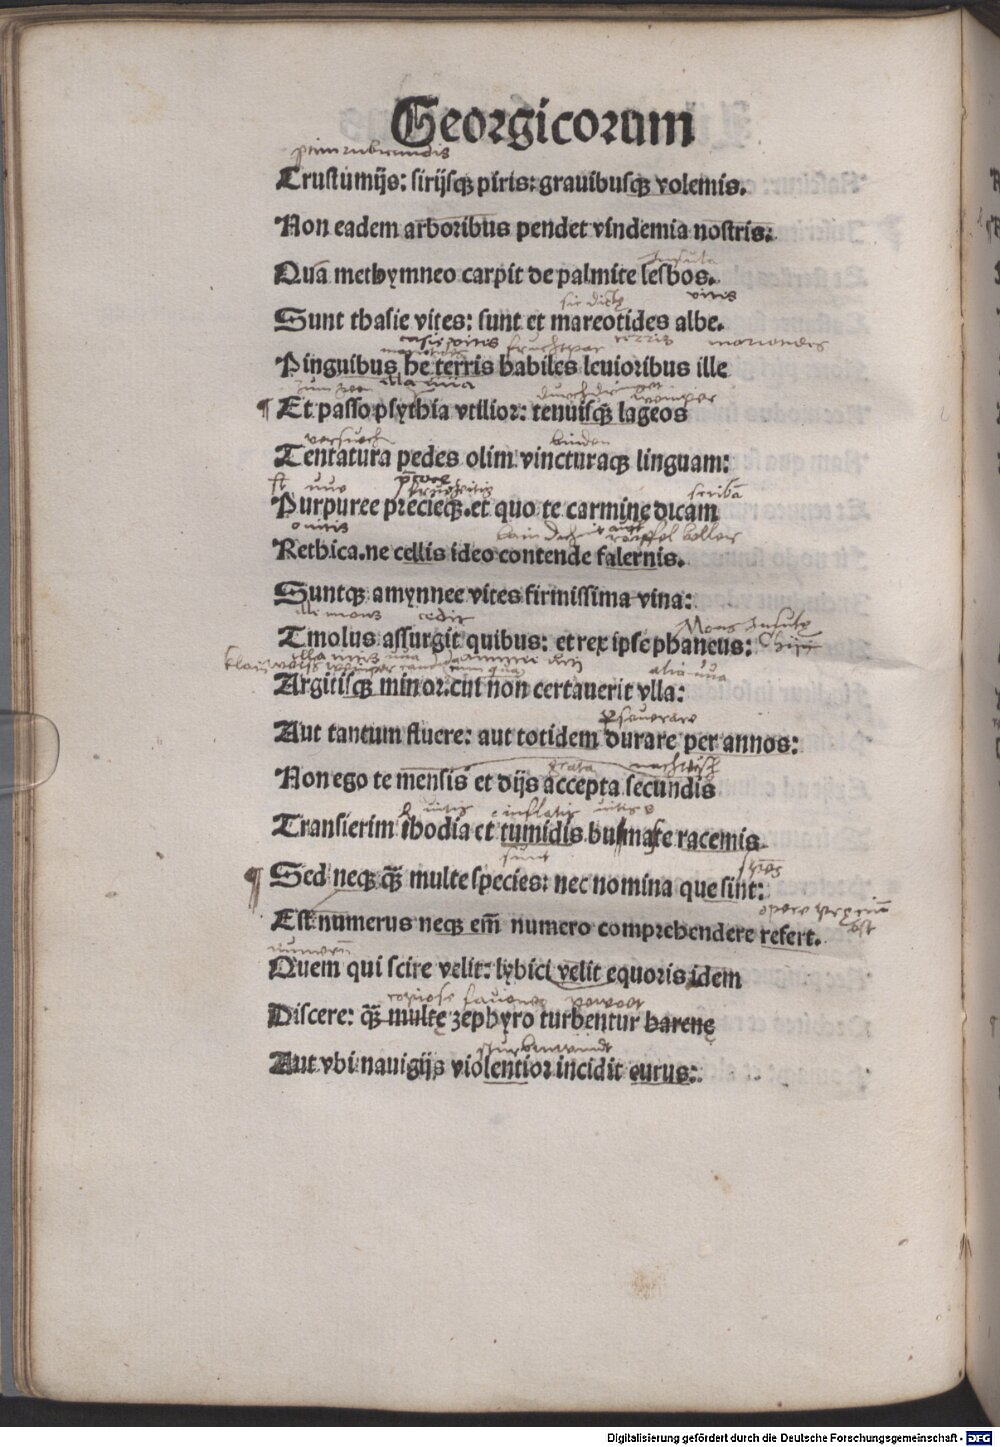 Georgicorum
Crustumijs: sirijsqꝫ piris: grauibusqꝫ volemis.
Non eadem arboribus pendet vindemia nostris:
Insula
Quā methymneo carpit de palmite lesbos.
vites
Sunt thasie vites: sunt et mareotides albe.
Pinguibus he terris habiles leuioribus ille
illa uua
¶ Et passo psythia vtilior: tenuisqꝫ lageos
versuech binden
Tentatura pedes olim vincturaqꝫ linguam:
st uue
Purpuree precieqꝫ. et quo te carmine dicam
o vitis
Rethica. ne cellis ideo contende falernis.
Suntqꝫ amynnee vites firmissima vina:
ille mons cedit Mons Insule
Tmolus assurgit quibus: et rex ipse phaneus: Chij
alia uua
Argitisqꝫ minor. cui non certauerit vlla:
Aut tantum fluere: aut totidem durare per annos:
grata nachtisch
Non ego te mensis et dijs accepta secundis
o uitis inflatis uitis
Transierim rhodia et tumidis bumaste racemis
sunt
¶ Sed neqꝫ q̄ꝫ multe species: nec nomina que sint:
Est numerus neqꝫ em̄ numero comprehendere refert.
numerū
Quem qui scire velit: lybici velit equoris idem
copiose
Discere: q̄ꝫ multę zephyro turbentur harenę
Aut vbi nauigijs violentior incidit eurus:
Digitalisierung gefördert durch die Deutsche Forschungsgemeinschaft - DFG